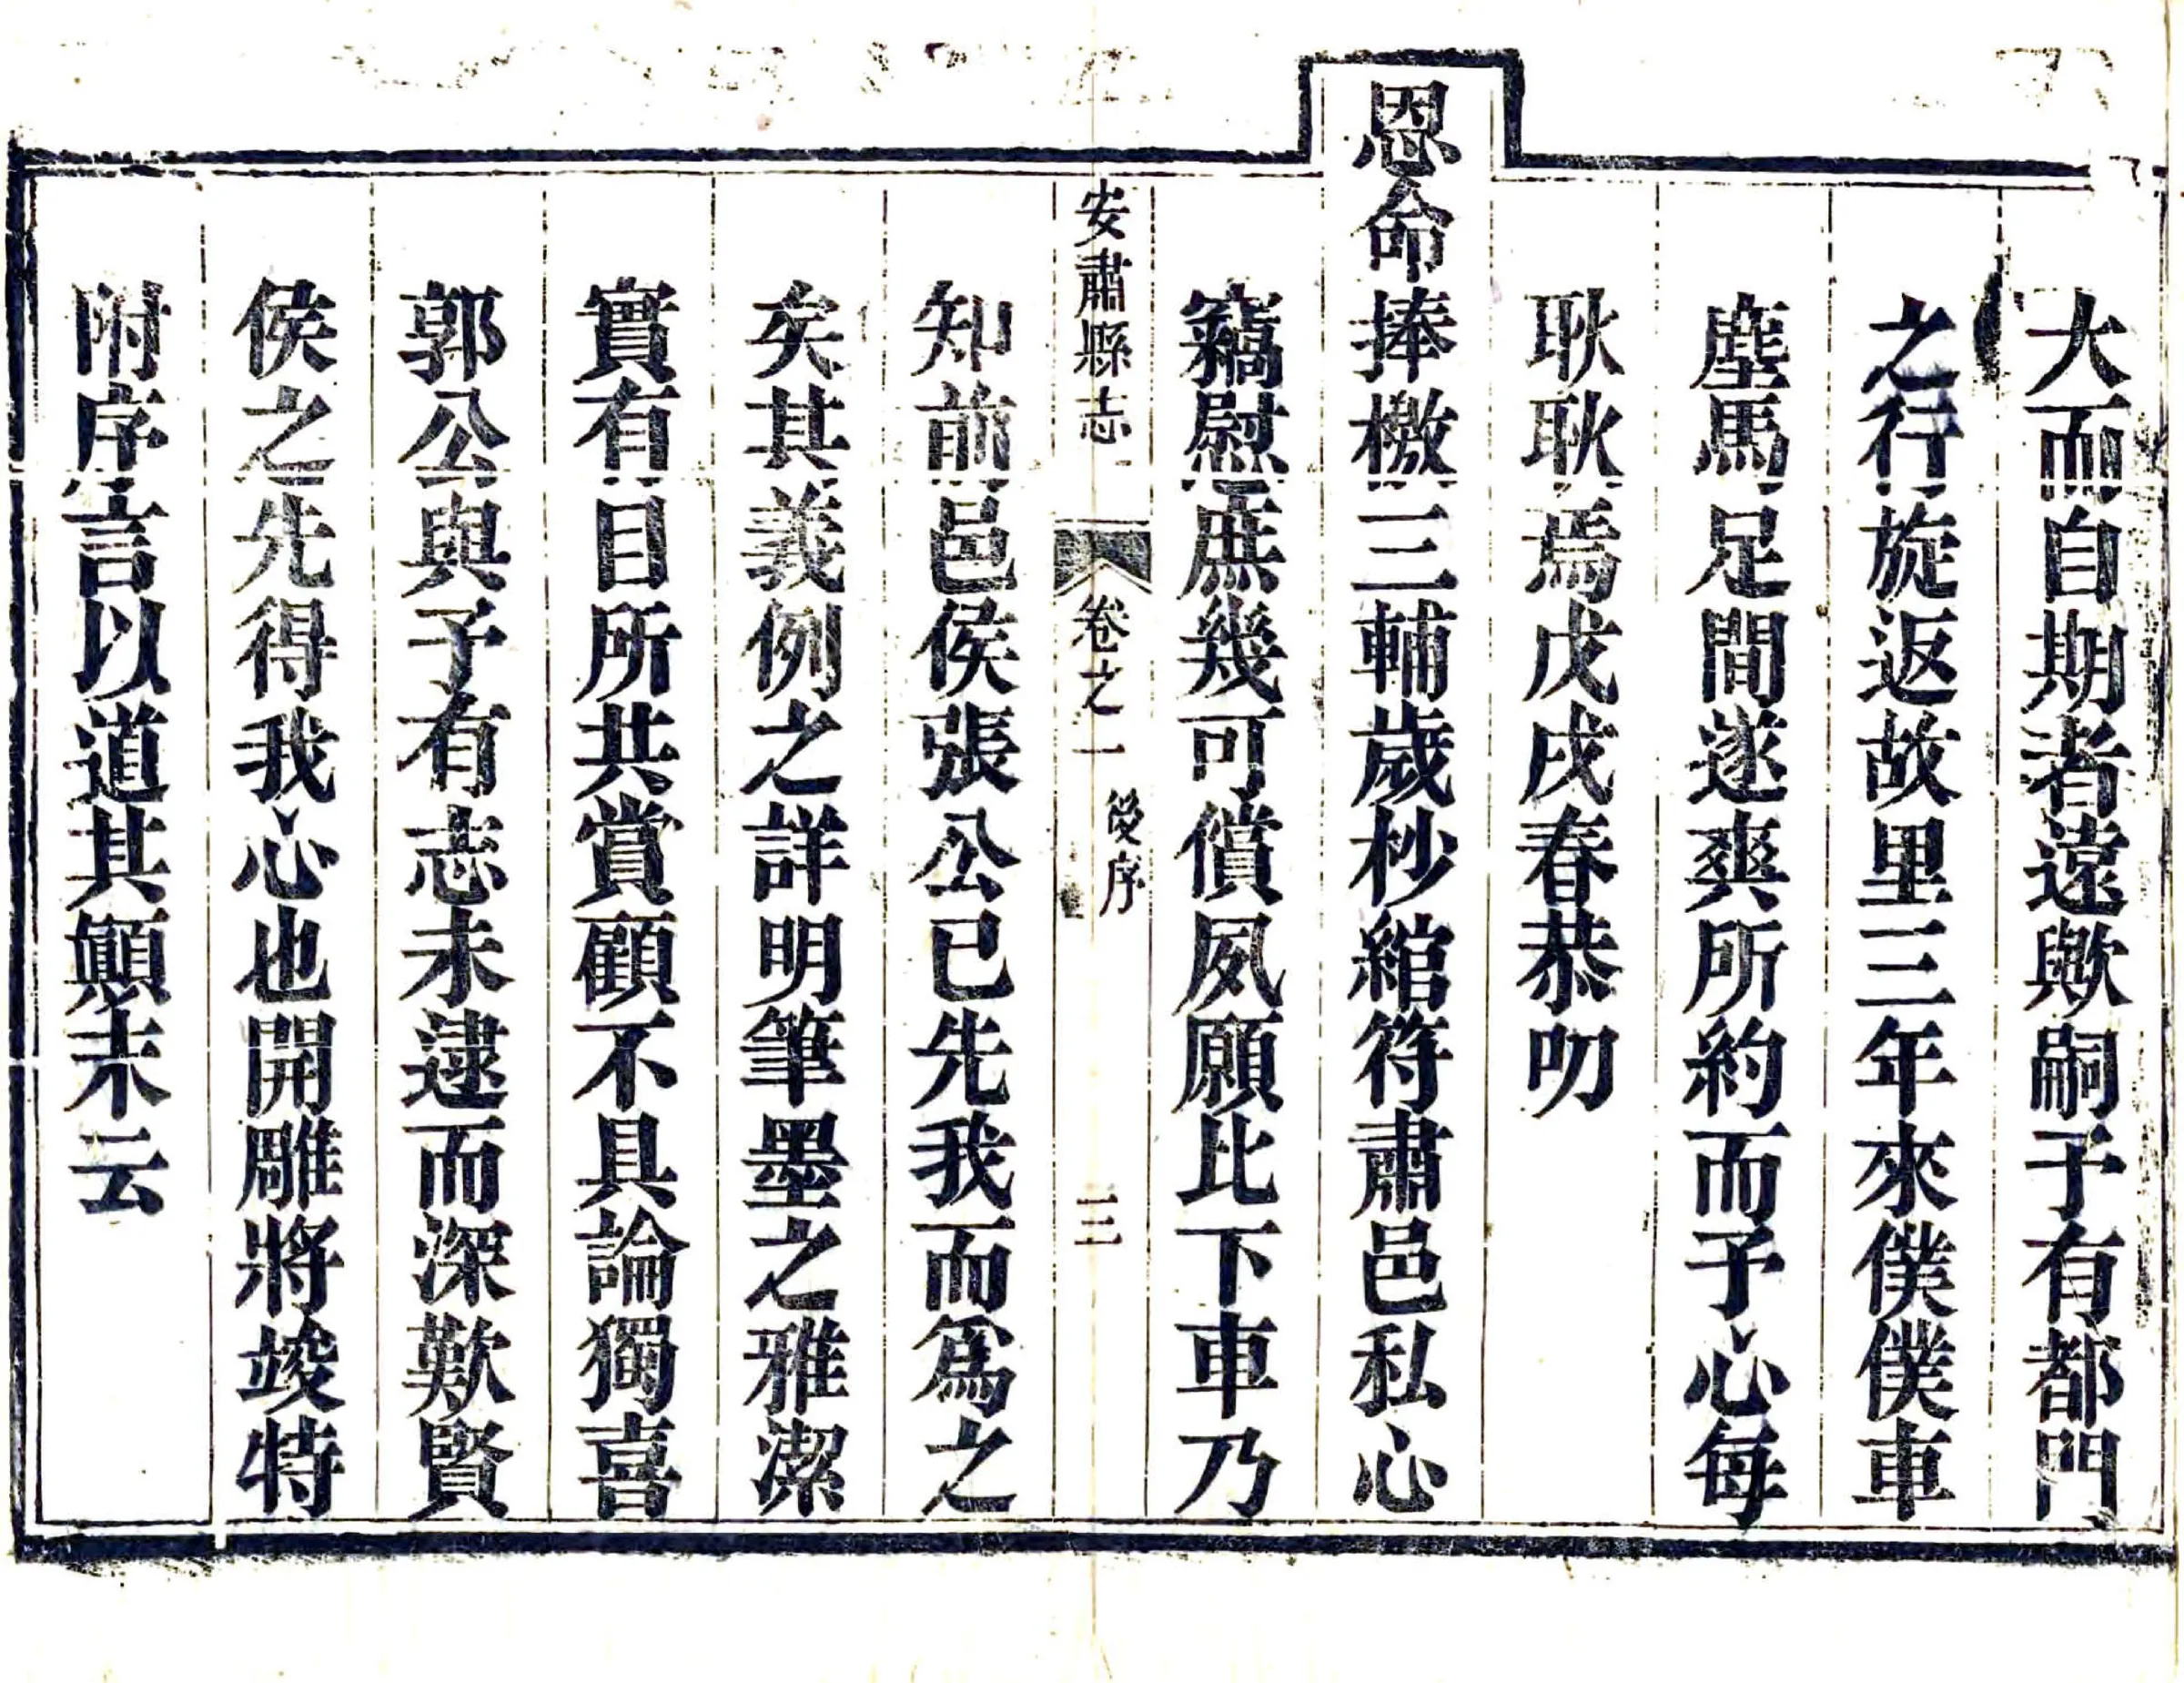 大而自期者遠歟嗣子有都門
之行旋返故里三年來僕僕車
塵馬足間遂爽所約而予心每
耿耿焉戊戌春恭叨
恩命捧檄三輔歲杪綰符肅邑私心
竊慰庶幾可償夙願比下車乃
安肅縣志 卷之一 序 三
知前邑侯張公已先我而爲之
矣其義例之詳明筆墨之雅潔
實有目所共賞顧不具論獨喜
郭公與予有志未逮而深歎賢
侯之先得我心也開雕將竣特
附序言以道其顚末云